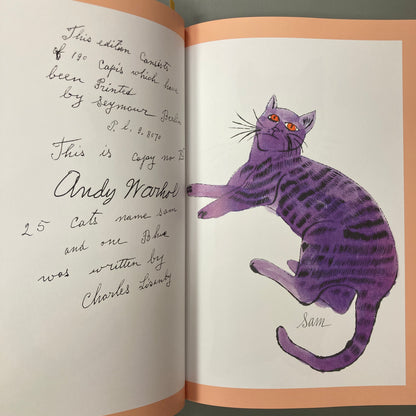 This edition Consists
of 190 Capis which have
been Printed
by Seymour Berlin
P. L. 8. 8070
This is copy no
Andy Warhol
25 cats name sam
and one Blue
was written by
Charles Lisanby
Sam